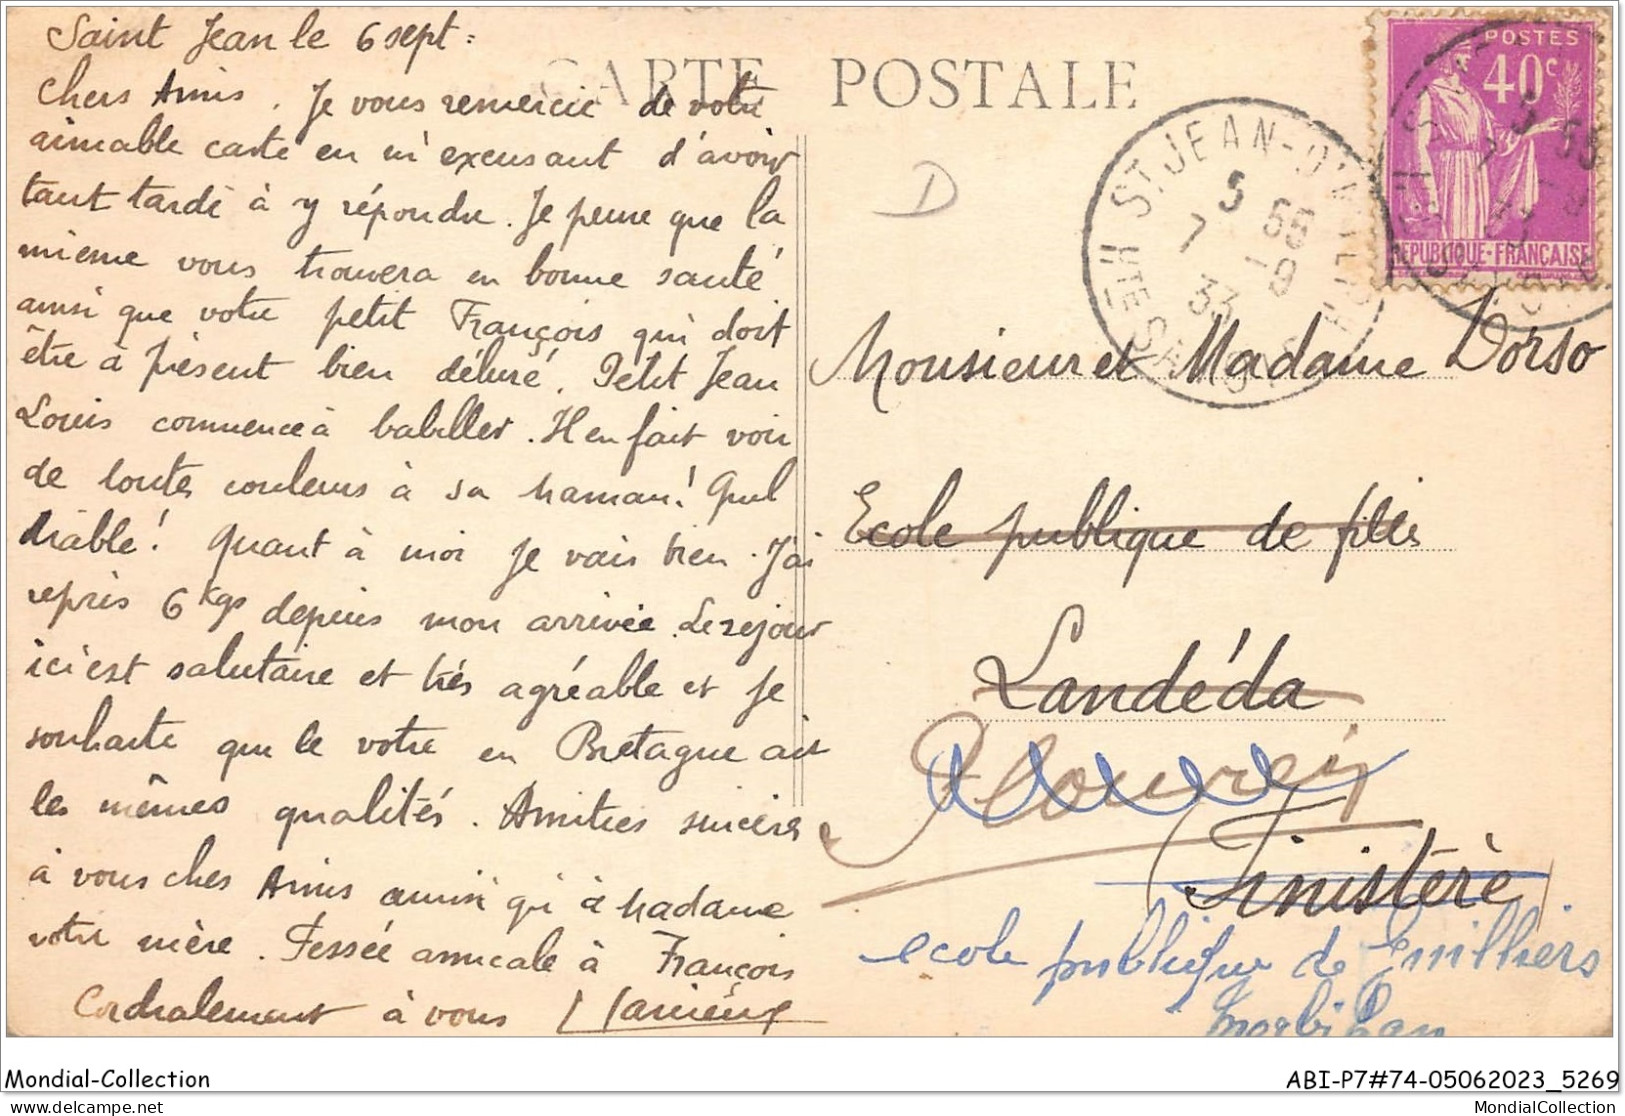 Saint Jean le 6 sept =
CARTE POSTALE
chers Amis. Je vous remercie de votre
aimable carte en m'excusant d'avoir
tant tardé à y répondre. Je pense que la
mienne vous trouvera en bonne santé
ainsi que votre petit François qui doit
être à présent bien déluré. Petit Jean
Louis commence à babiller. Il en fait voir
de toutes couleurs à sa maman! Quel
diable! Quant à moi je vais bien. J'ai
repris 6 kgs depuis mon arrivée. Le séjour
ici est salutaire et très agréable et je
souhaite que le votre en Bretagne ait
les mêmes qualités. Amitiés sincères
à vous chers Amis ainsi qu'à Madame
votre mère. Fessée amicale à François
Cordialement à vous
D
ST JEAN-D'AULPH
5 55
7 -9
33
HTE SAVOIE
POSTES
40c
REPUBLIQUE-FRANÇAISE
Monsieur et Madame Dorso
Ecole publique de filles
Landéda
Finistère
ecole publique de
Morbihan
Mondial-Collection
ABI-P7#74-05062023_5269
delcampe.net
MondialCollection